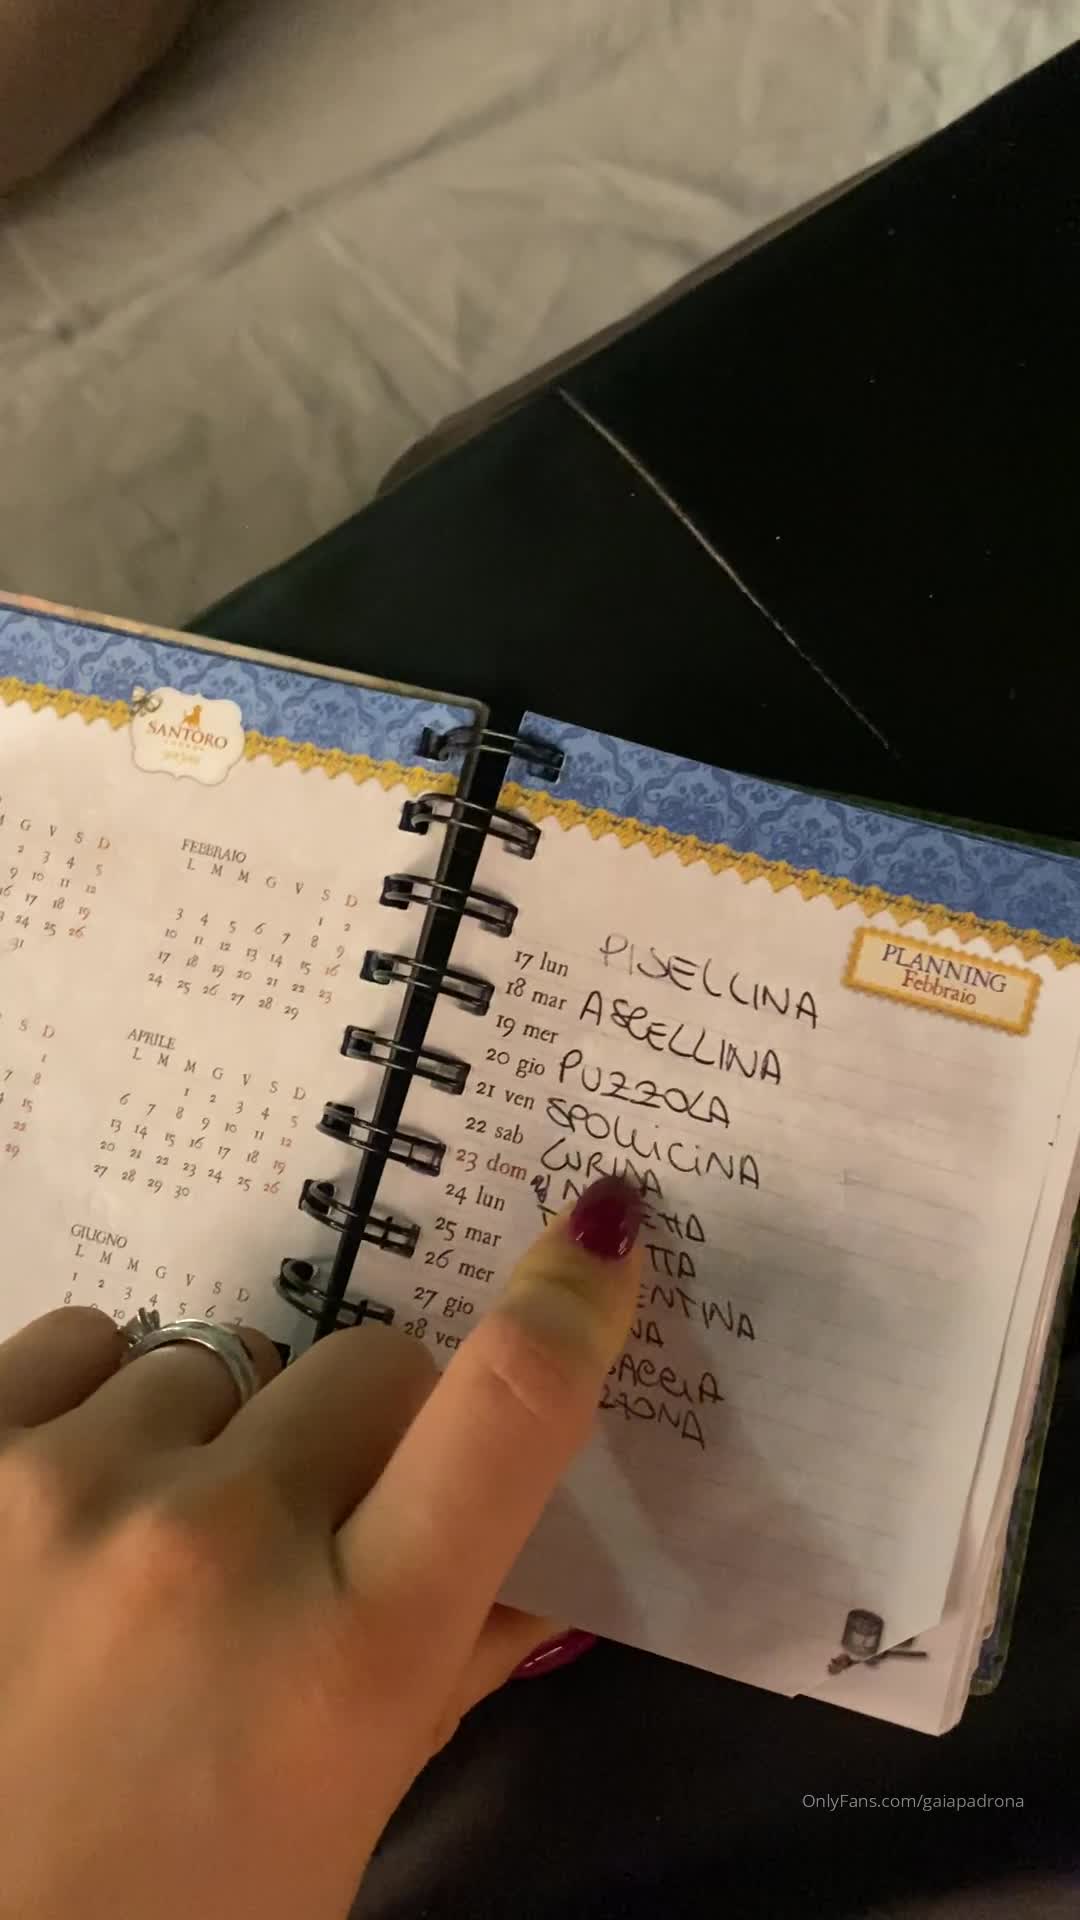 SANTORO
LONDON
M G V S D
2 3 4 5
9 10 11 12
16 17 18 19
24 25 26
31
FEBBRAIO
L M M G V S D
1 2
3 4 5 6 7 8 9
10 11 12 13 14 15 16
17 18 19 20 21 22 23
24 25 26 27 28 29
S D
1
7 8
15
22
29
APRILE
L M M G V S D
1 2 3 4 5
6 7 8 9 10 11 12
13 14 15 16 17 18 19
20 21 22 23 24 25 26
27 28 29 30
GIUGNO
L M M G V S D
1 2 3 4 5 6 7
8 9 10
PLANNING
Febbraio
17 lun PISELLINA
18 mar ASCELLINA
19 mer
20 gio PUZZOLA
21 ven SPOLLICINA
22 sab
23 dom
24 lun
25 mar
26 mer
27 gio
28 ven
ETTA
TTA
ENTINA
NA
ACCIA
ZZONA
OnlyFans.com/gaiapadrona